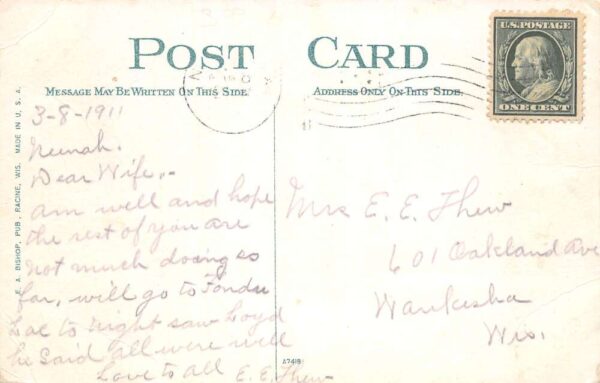 POST CARD
MESSAGE MAY BE WRITTEN ON THIS SIDE
ADDRESS ONLY ON THIS SIDE
U.S. POSTAGE
ONE CENT
E. A. BISHOP, PUB., RACINE, WIS. MADE IN U. S. A.
3-8-1911
Neenah.
Dear Wife,-
am well and hope
the rest of you are
not much doing so
far, will go to Fondu
Lac to night saw Loyd
he said all were well
Love to all E. E. Thew
Mrs E. E. Thew
601 Oakland Ave
Waukesha
Wis.
A7418